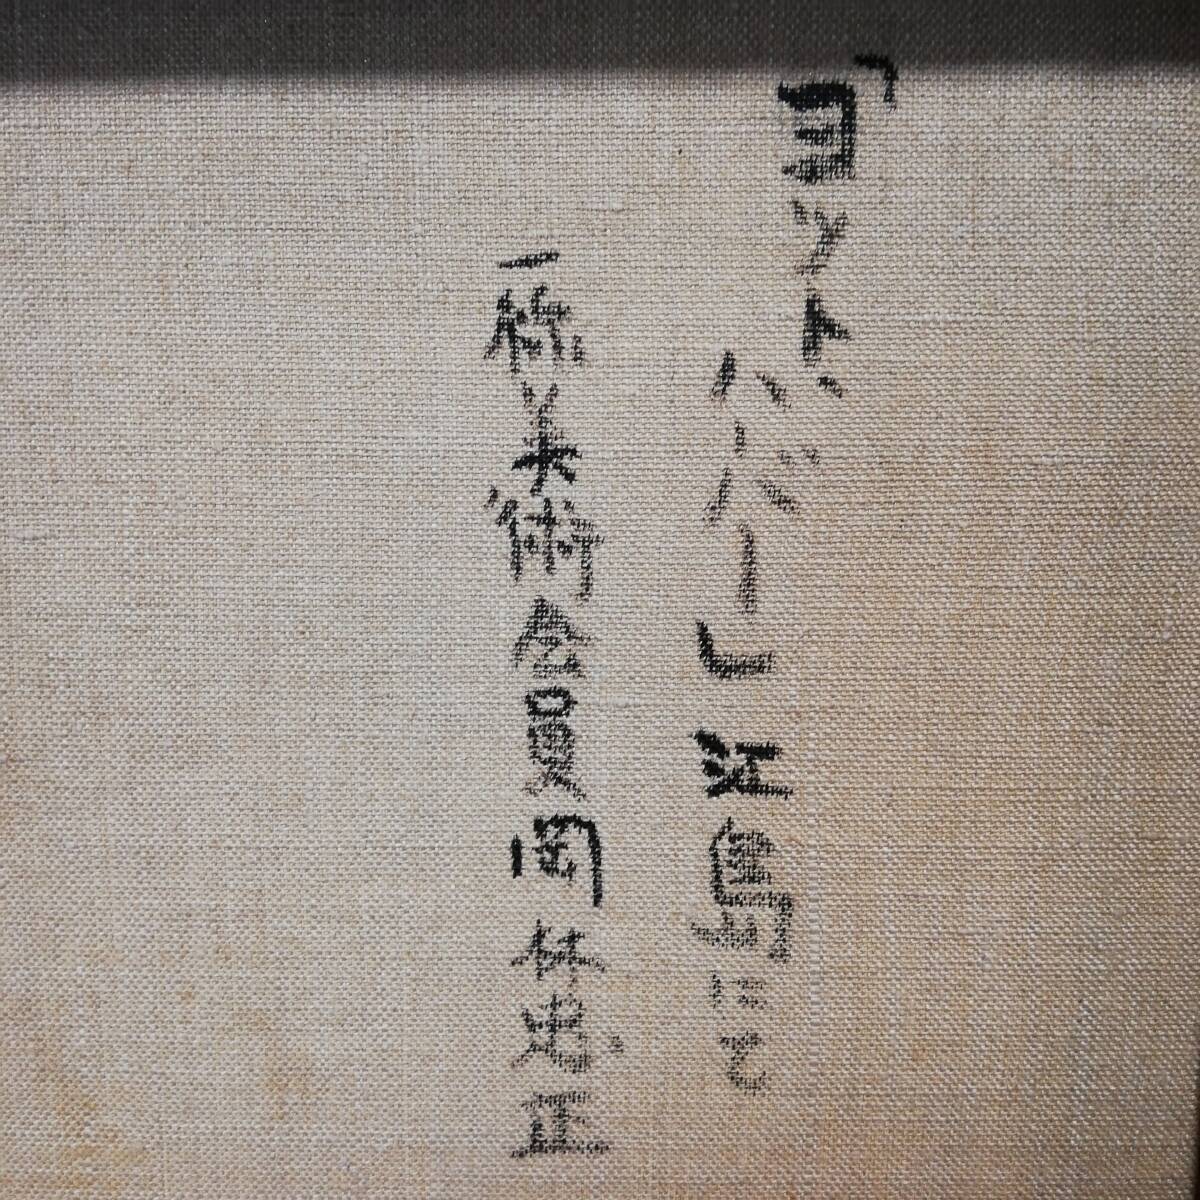 「ヨット
ハーバー」江島にて
一線美術会員岡林忠正